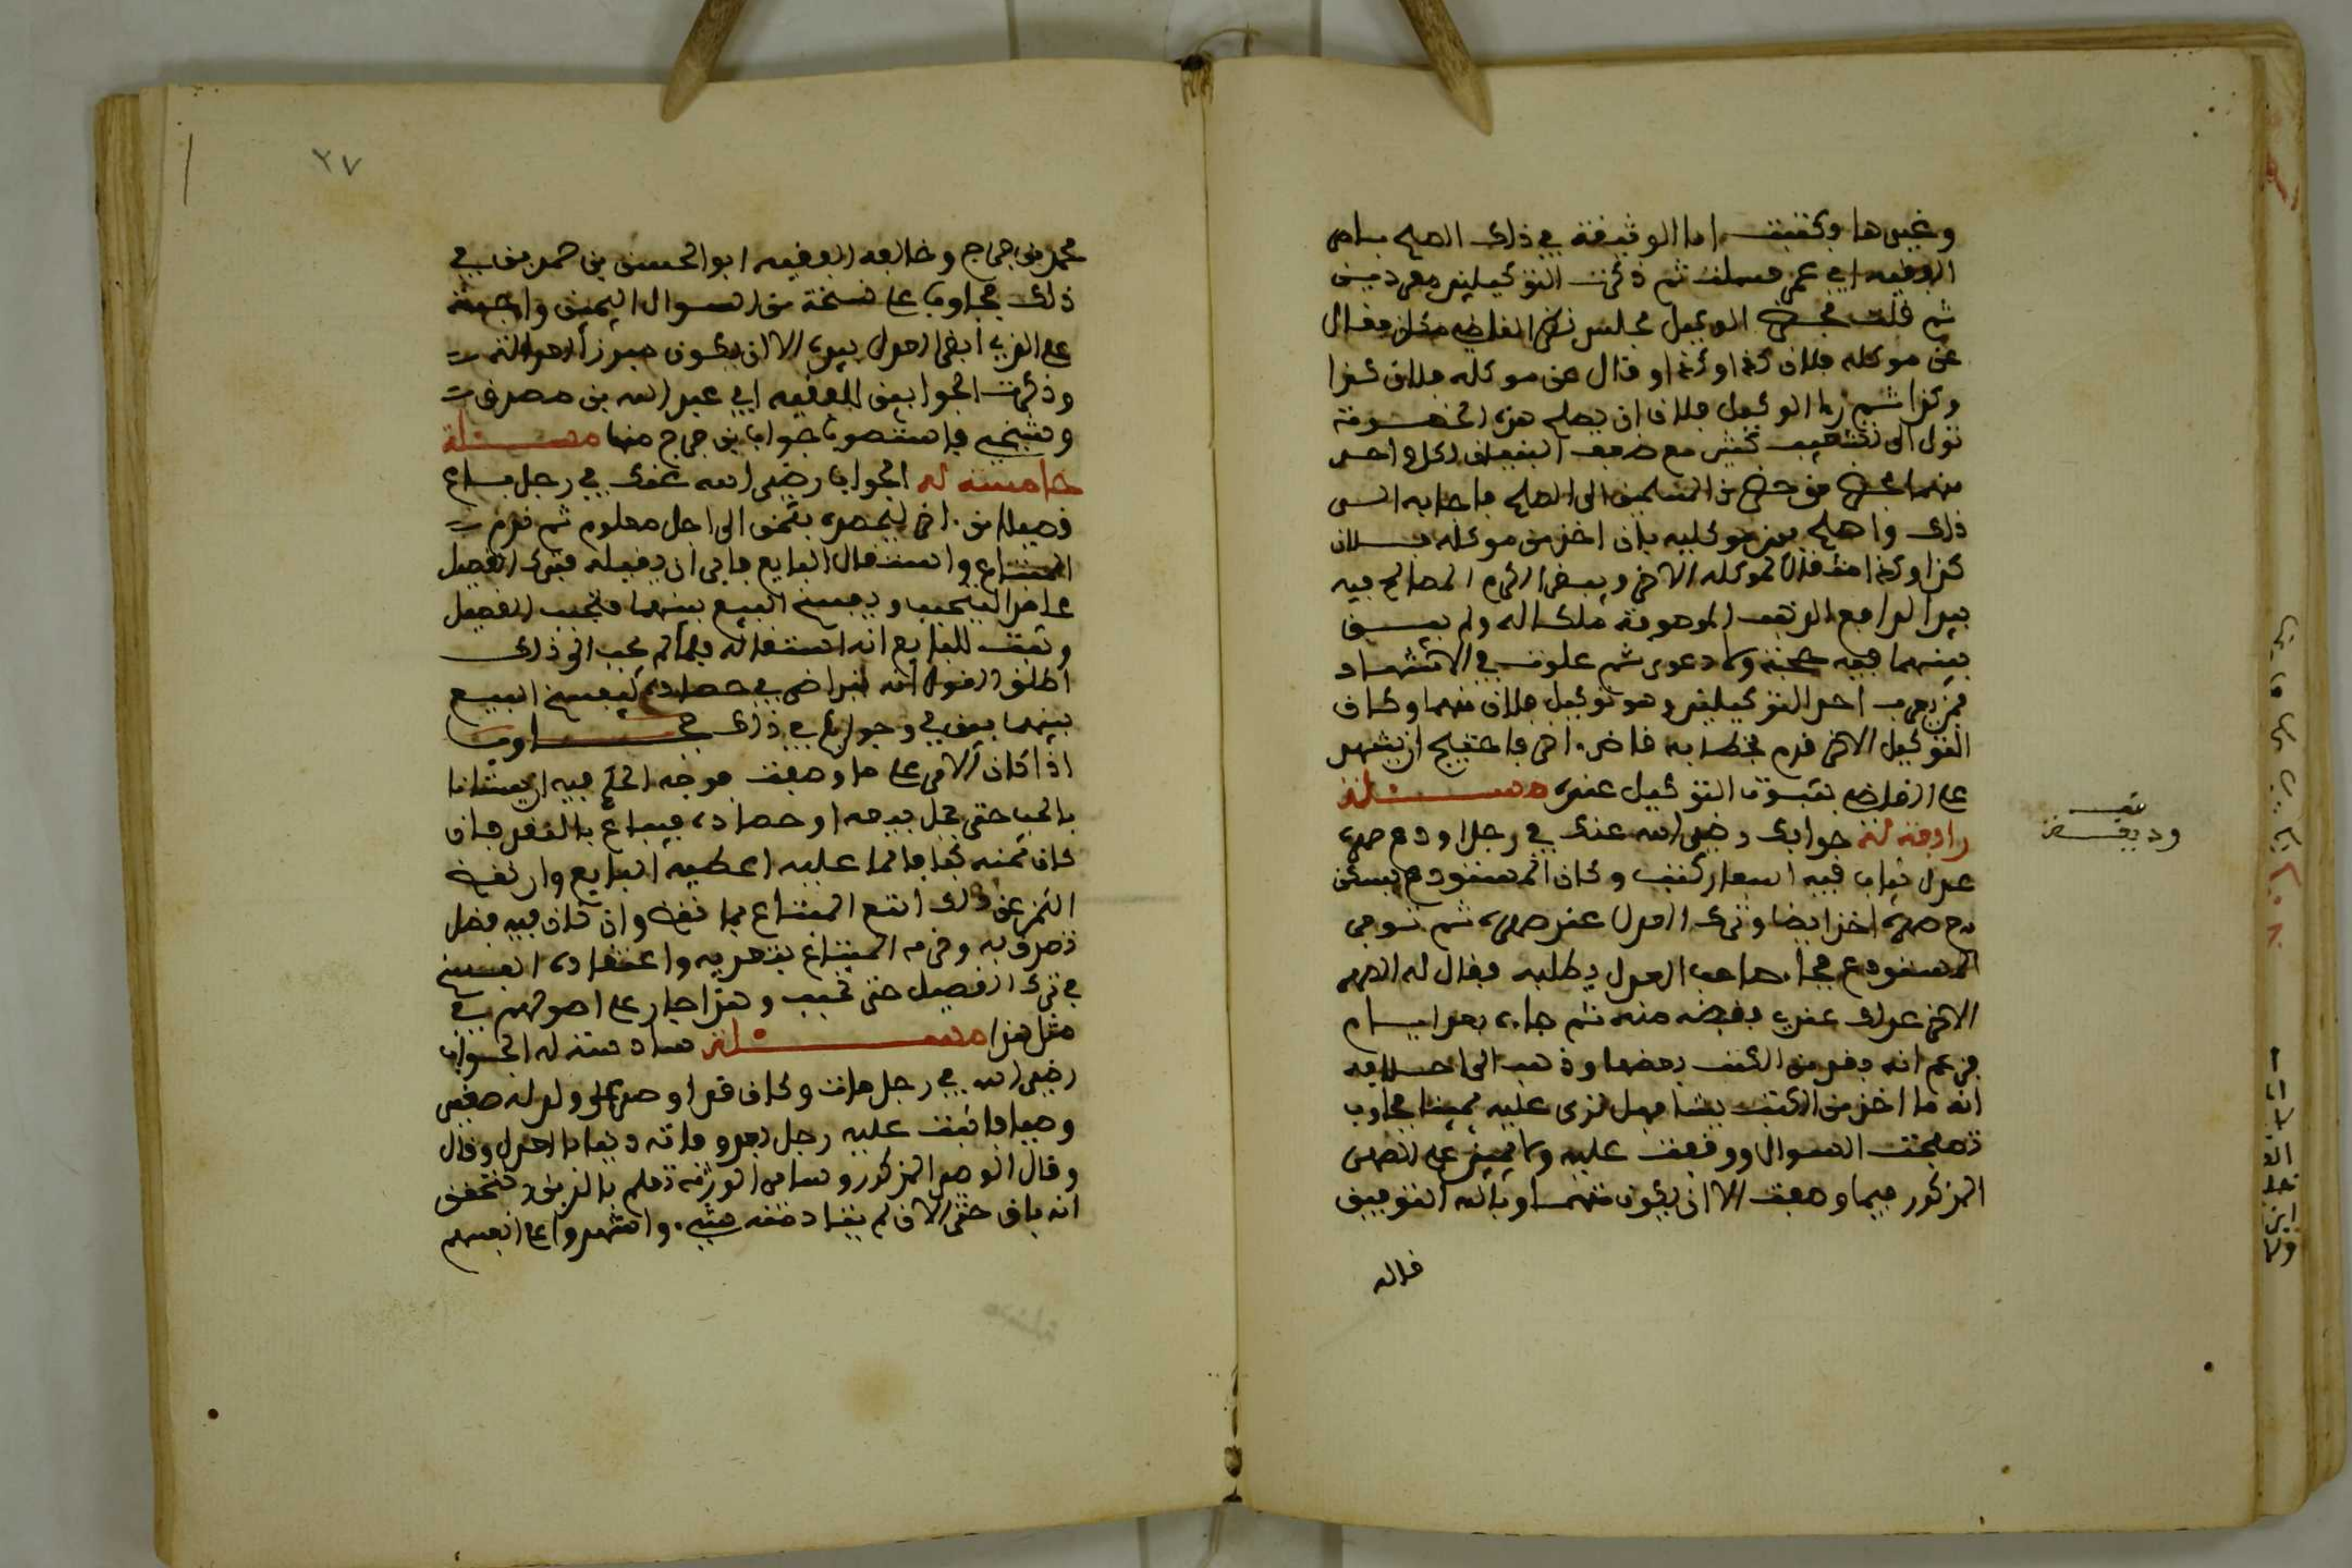 وغيرها وكتبت اما الوثيقة في ذلك الصلح بامر
الفقيه ابي عمر فسلمت ثم ذكرت التوكيلين معرد من
ثم قلت فحضر الوكيل مجلس نظر القاضي فلان فقال
عن موكله فلان كذا وكذا وقال عن موكله فلان كذا
وكذا ثم را الوكيل فلان ان يصلح هذه الخصومة
تؤل الى تشعيب كثير مع ضعف اليقين لكل واحد
منهما فحضر من حضر من المسلمين الى الصلح فاجابه الى
ذلك واصلح بين موكليه بان اخذ من موكله فلان
كذا وكذا مثقالا لموكله الاخر وبيض الكرم المصالح فيه
بيد الدافع الذهب الموصوفة ملكا له ولم يبق
بينهما فيه حجة ولا دعوى ثم علوت في الاشهاد
فمن يعرف احد التوكيلين وهو توكيل فلان منهما وكان
التوكيل الاخر قدم بخطابه قاض اخر فاحتيج ان يشهد
على القاضي بثبوت التوكيل عنده مسئلة
رابعة له جوابك رضي الله عنك في رجل اودع صهره
عدل ثياب فيه اسعار كتب وكان المستودع يسكن
مع صهره اخر ايضا وترك العدل عند صهره ثم توفي
المستودع فجاء صاحب العدل يطلبه فقال له الصهر
الاخر عدلك عندي فقبضه منه ثم جاءه بعد ايام
فزعم انه فقد من الكتب بعضها وذهب الى احلافه
انه ما اخذ من الكتب شيا فهل ترى عليه يمينا فجاوب
تصفحت السوال ووقفت عليه ولا يمين على الصهر
المذكور فيما وصفت الا ان يكون متهما وبالله التوفيق
قاله
تقف
وديعة
٢٧
محمد بن جراح وخالفه الفقيه ابو الحسن بن حمدين في
ذلك فجاوب على نسخة من السوال اليمين واجبة
على الذي ابقى العدل بيده الا ان يكون مبرزا العدالة
وذكرت الجوابين للفقيه ابي عبد الله بن
وشيخي فاستصوبا جواب بن جراح منها مسئلة
خامسة له الجواب رضي الله عنك في رجل باع
فصيلا من اخر ليحصده بثمن الى اجل معلوم ثم ندم
المبتاع واستقال البايع فابى ان يقيله فترك الفصيل
على هذا ليتحبب ويفسخ البيع بينهما فتحبب الفصيل
وثبت للبايع انه استقاله فلما لم يجب الى ذلك
اطلق القول انه لم ياخذ في حصاده ليفسخ البيع
بينهما بين لي وجوابك في ذلك فجاوب
اذا كان الامر على ما وصفت فوجه الحكم فيه ان يستانا
بالحب حتى يحل بيعه او حصاده فيباع بالنقد فان
كان ثمنه كفافا لما عليه اعطيه البايع وان نقص
الثمن عن ذلك اتبع المبتاع بما نقص وان كان فيه فضل
تصدق به وغرمه المبتاع بتعديه واعتقاده الفسخ
في ترك الفصيل حتى تحبب وهذا جار على اصولهم في
مثل هذا مسئلة سادسة له الجواب
رضي الله في رجل مات وكان قد اوصى على ولد له صغير
وصيا فاثبت عليه رجل بعد وفاته دينا بالعدل وقال
وقال الوصي المذكور وساير الورثة نعلم بالدين ونتحقق
انه باق حتى الان لم يتاد منه شيء واشهدوا على انفسهم